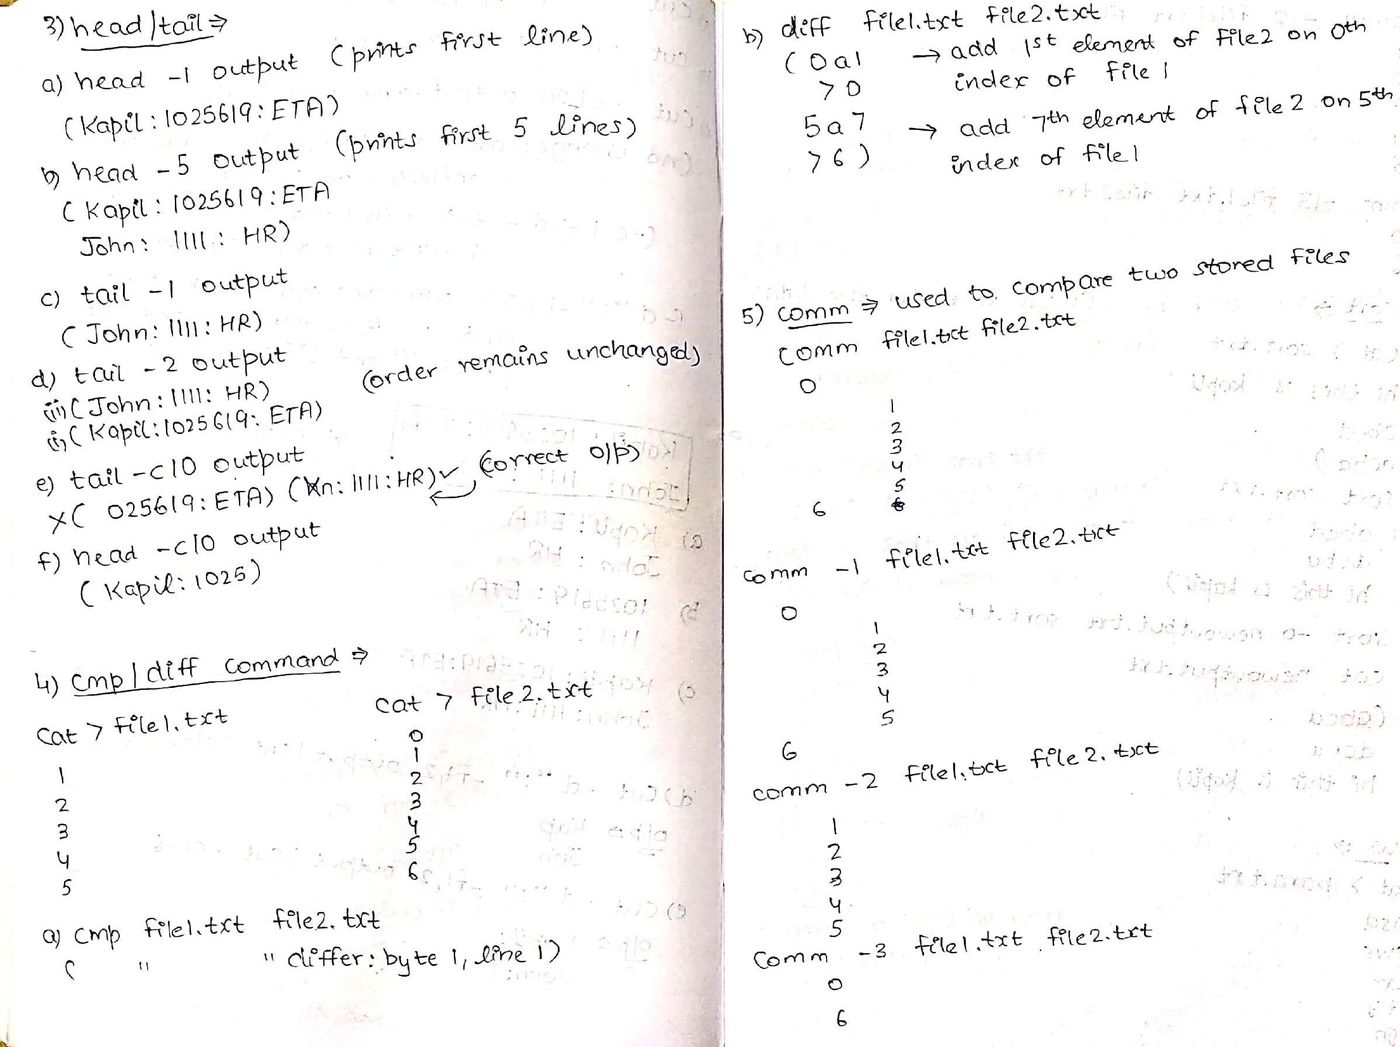 3) head/tail ⇒
a) head -1 output (prints first line)
(Kapil:1025619:ETA)
b) head -5 output (prints first 5 lines)
(Kapil:1025619:ETA
John: 1111: HR)
c) tail -1 output
(John:1111:HR)
d) tail -2 output
(order remains unchanged)
ii)(John:1111: HR)
i)(Kapil:1025619: ETA)
e) tail -c10 output
x( 025619:ETA) (n:1111:HR)✓ (correct o/p)
f) head -c10 output
(Kapil:1025)
4) cmp/diff command ⇒
cat > file1.txt
1
2
3
4
5
cat > file2.txt
0
1
2
3
4
5
6
a) cmp file1.txt file2.txt
( " " differ: byte 1, line 1)
b) diff file1.txt file2.txt
(0a1 → add 1st element of file2 on 0th
>0 index of file1
5a7 → add 7th element of file2 on 5th
>6) index of file1
5) comm ⇒ used to compare two stored files
comm file1.txt file2.txt
0
1
2
3
4
5
6
comm -1 file1.txt file2.txt
0
1
2
3
4
5
6
comm -2 file1.txt file2.txt
1
2
3
4
5
comm -3 file1.txt file2.txt
0
6